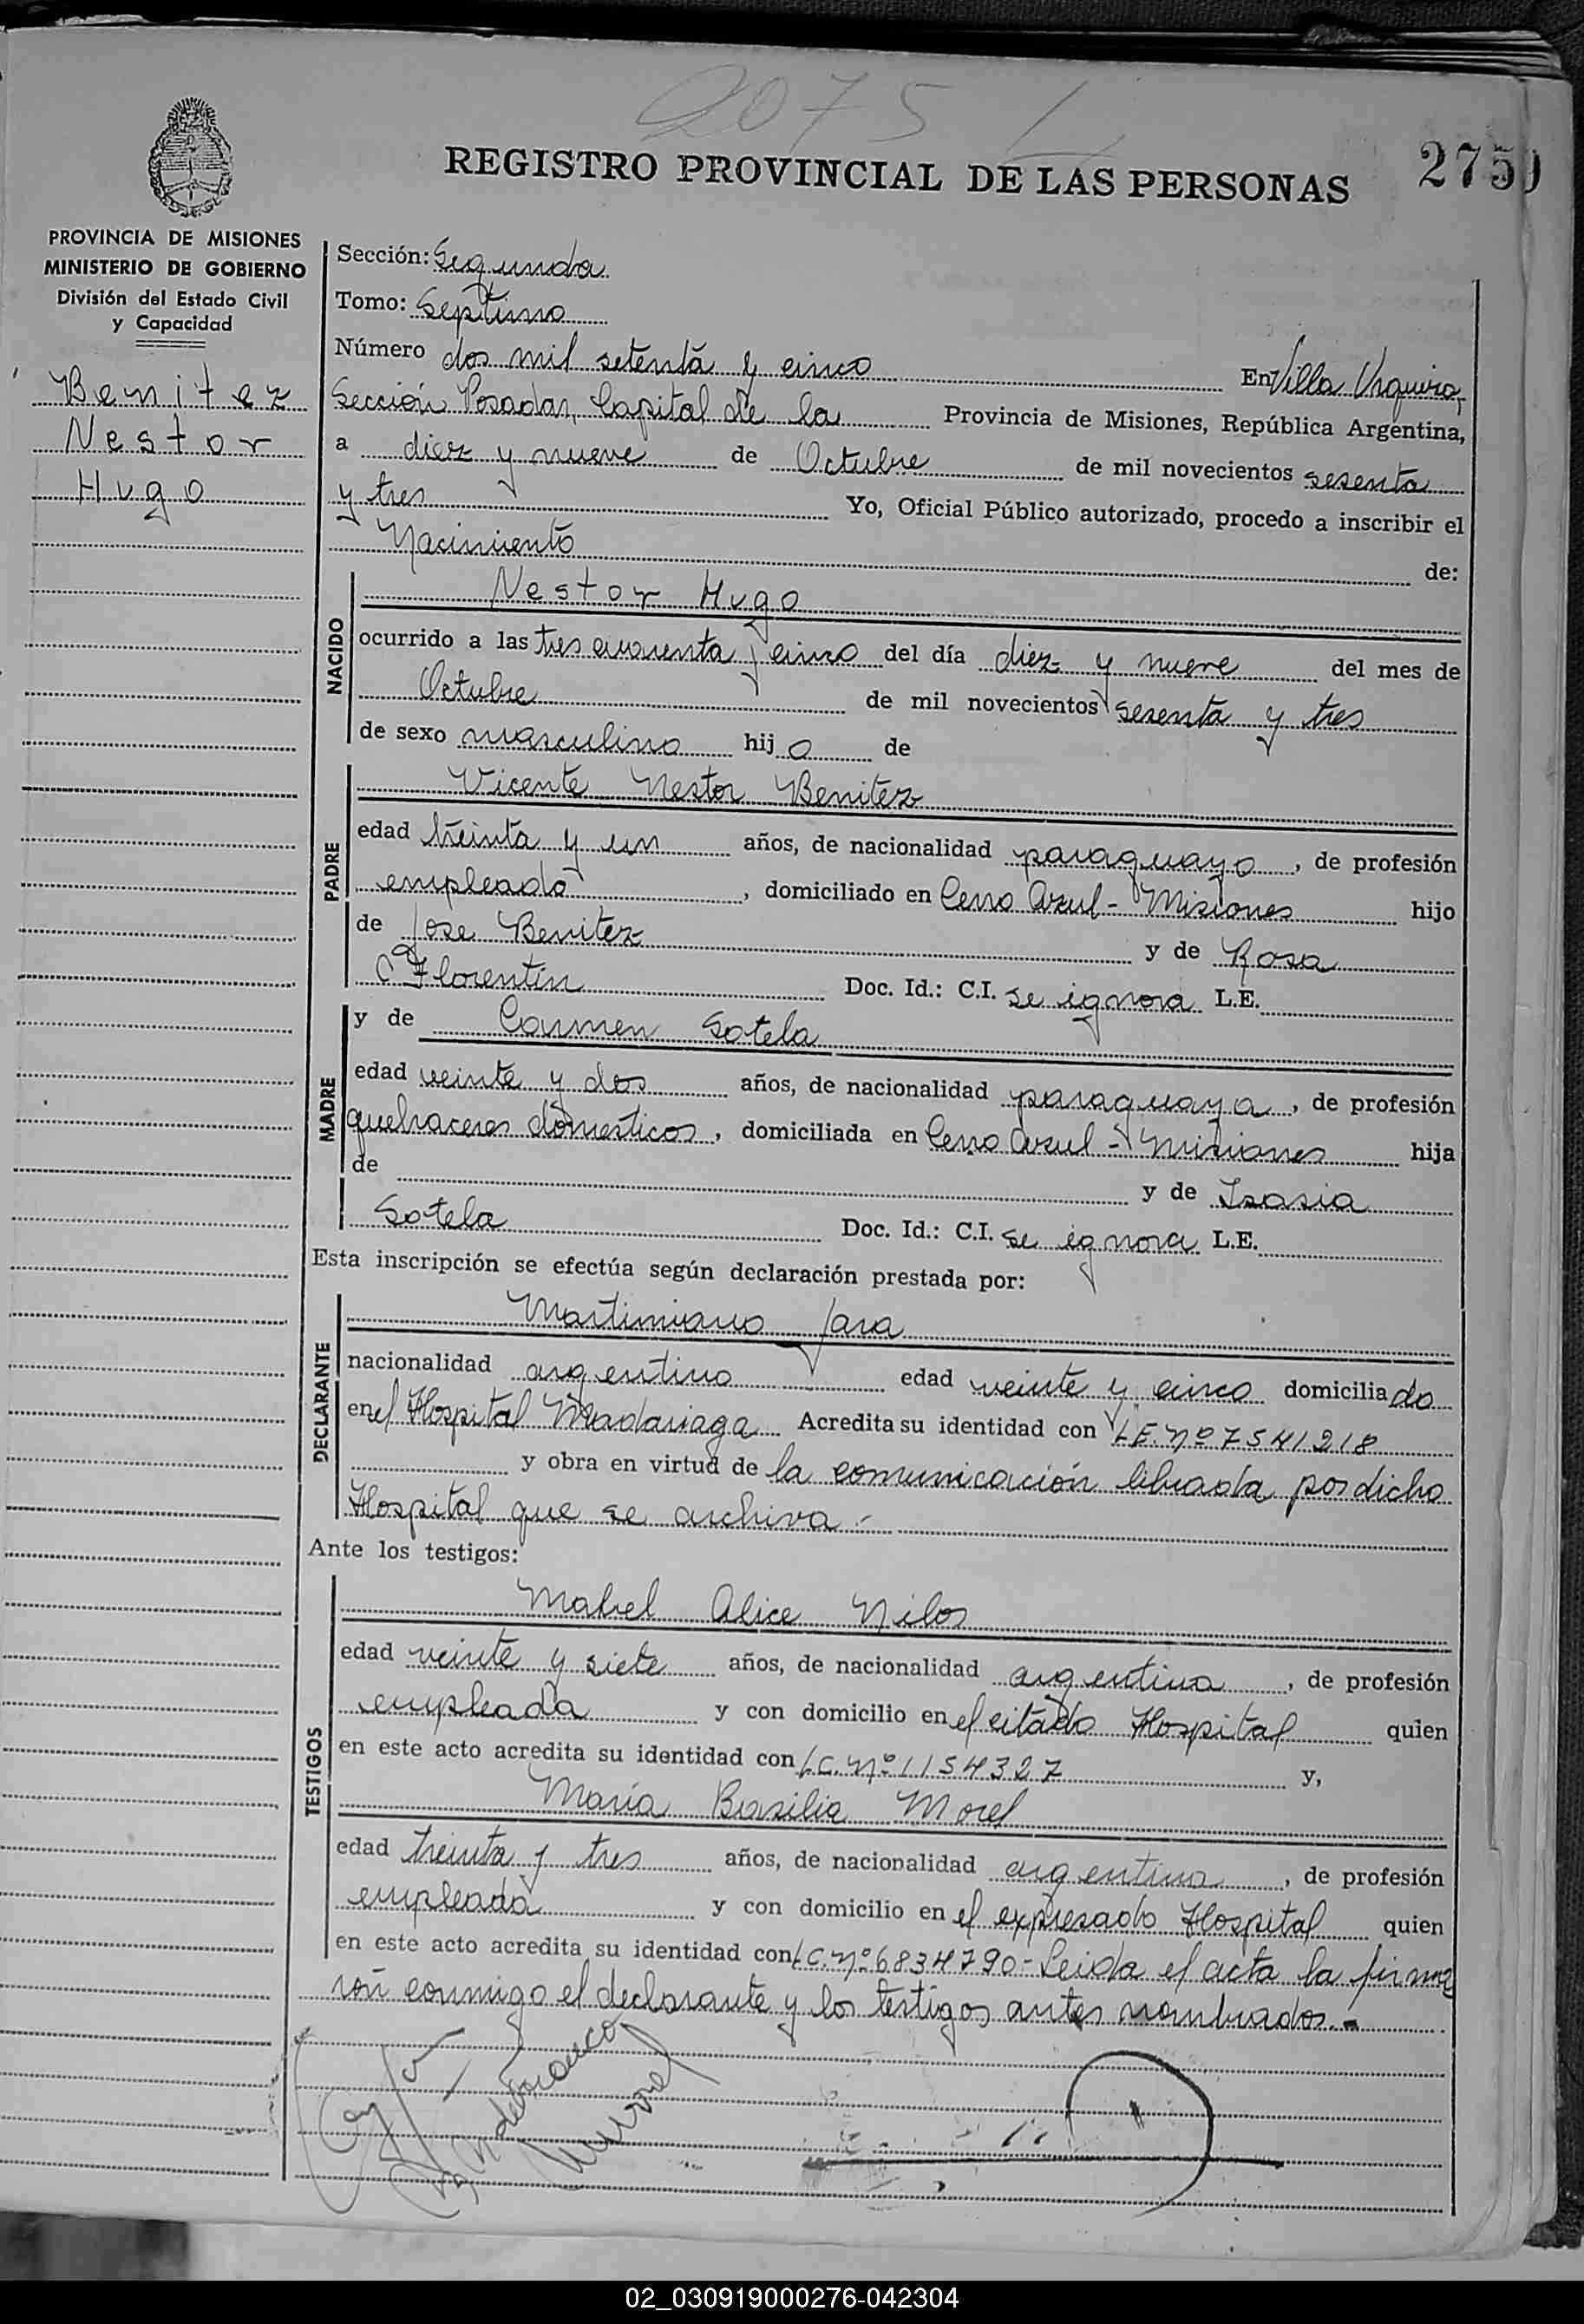 2075
REGISTRO PROVINCIAL DE LAS PERSONAS
2750
PROVINCIA DE MISIONES
MINISTERIO DE GOBIERNO
División del Estado Civil
y Capacidad
Benitez
Nestor
Hugo
Sección: Segunda
Tomo: Septimo
Número dos mil setenta y cinco En Villa Urquiza,
Sección Posadas, Capital de la Provincia de Misiones, República Argentina,
a diez y nueve de Octubre de mil novecientos sesenta
y tres Yo, Oficial Público autorizado, procedo a inscribir el
Nacimiento de:
NACIDO
Nestor Hugo
ocurrido a las tres cuarenta y cinco del día diez y nueve del mes de
Octubre de mil novecientos sesenta y tres
de sexo masculino hijo de
PADRE
Vicente Nestor Benitez
edad treinta y un años, de nacionalidad paraguayo, de profesión
empleado, domiciliado en Cerro Azul - Misiones hijo
de Jose Benitez y de Rosa
Florentín Doc. Id.: C.I. se ignora L.E.
MADRE
y de Carmen Sotela
edad veinte y dos años, de nacionalidad paraguaya, de profesión
quehaceres domesticos, domiciliada en Cerro Azul - Misiones hija
de y de Isasia
Sotela Doc. Id.: C.I. se ignora L.E.
Esta inscripción se efectúa según declaración prestada por:
DECLARANTE
Martimiano Jara
nacionalidad argentino edad veinte y cinco domiciliado
en el Hospital Madariaga Acredita su identidad con L.E. Nº 7541218
y obra en virtud de la comunicación librada por dicho
Hospital que se archiva.-
Ante los testigos:
TESTIGOS
Mabel Alice Nilos
edad veinte y siete años, de nacionalidad argentina, de profesión
empleada y con domicilio en el citado Hospital quien
en este acto acredita su identidad con L.C. Nº 1154327 y,
María Basilia Morel
edad treinta y tres años, de nacionalidad argentina, de profesión
empleada y con domicilio en el expresado Hospital quien
en este acto acredita su identidad con L.C. Nº 6834790- Leida el acta la firma
rón conmigo el declarante y los testigos antes nombrados.-
02_030919000276-042304